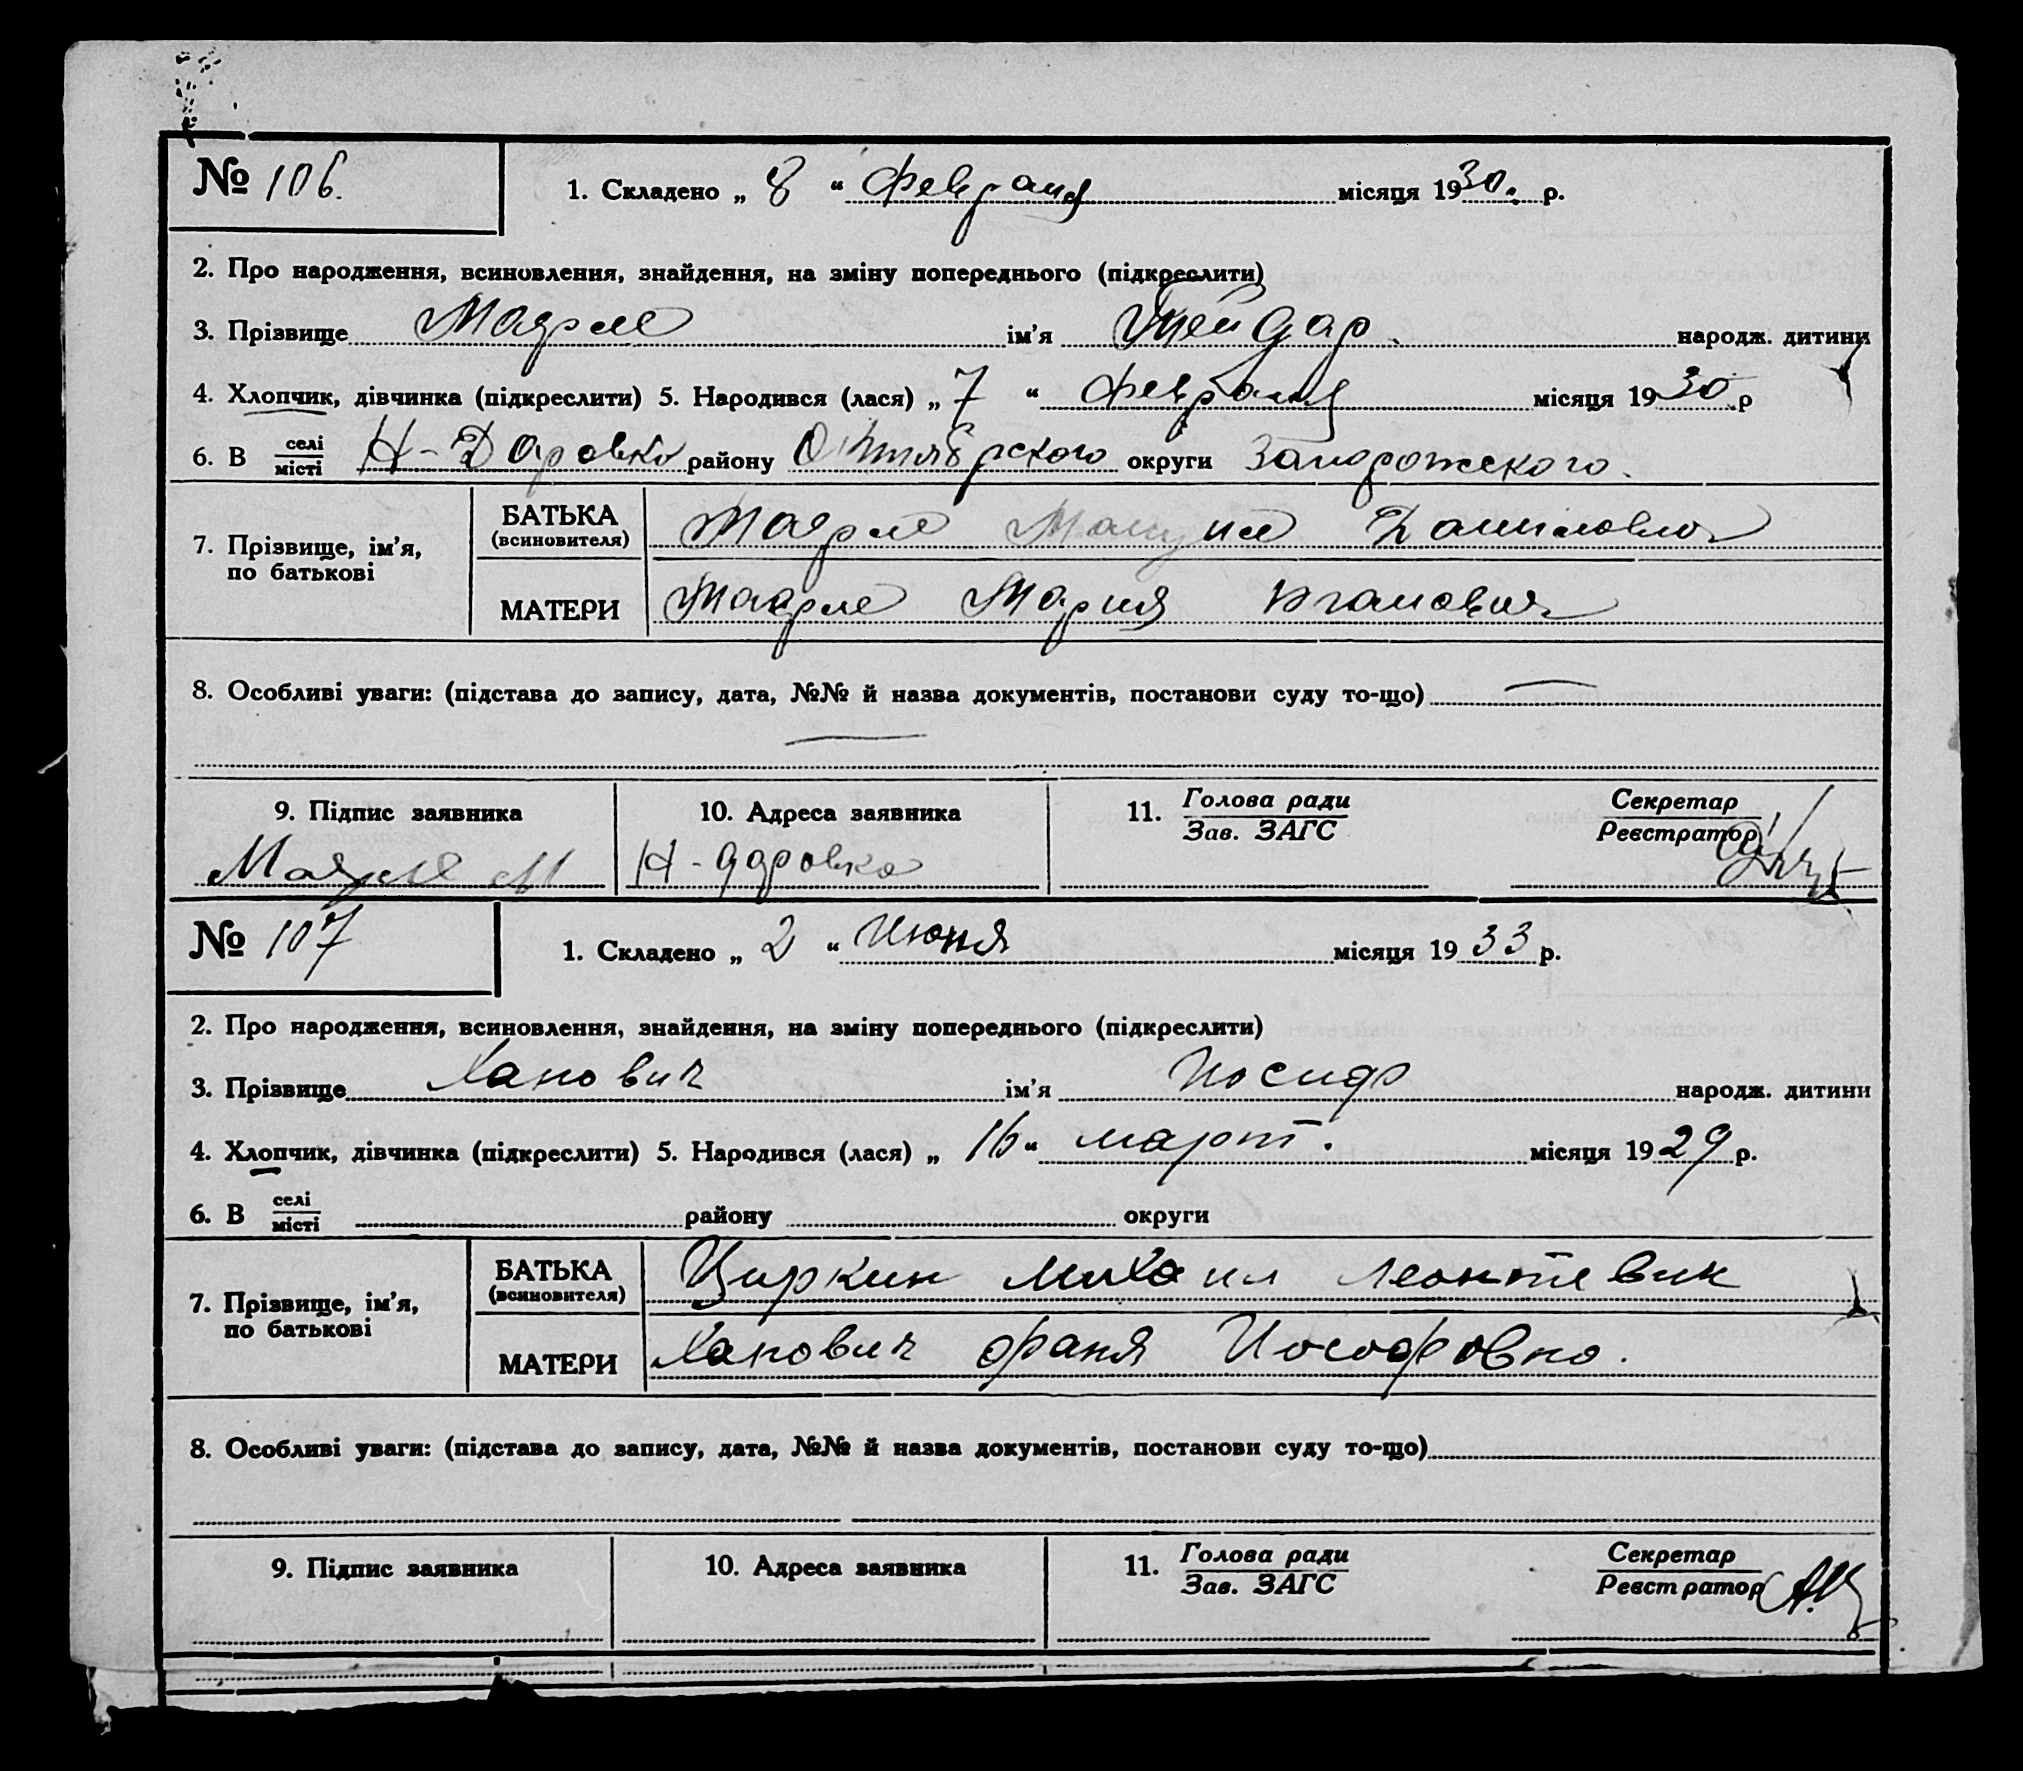 № 106.
1. Складено „ 8 “ февраля місяця 1930. р.
2. Про народження, всиновлення, знайдення, на зміну попереднього (підкреслити)
3. Прізвище ім’я народж. дитини
4. Хлопчик, дівчинка (підкреслити) 5. Народився (лася) „ 7 “ февраля місяця 1930 р
6. В селі місті Н-Даровка району Октябрского округи Запорожского.
7. Прізвище, ім’я, по батькові
БАТЬКА (всиновителя)
МАТЕРИ Мария
8. Особливі уваги: (підстава до запису, дата, №№ й назва документів, постанови суду то-що) —
—
9. Підпис заявника 10. Адреса заявника 11. Голова ради Зав. ЗАГС Секретар Реєстратор
Н-Даровка
№ 107
1. Складено „ 2 “ Июня місяця 1933 р.
2. Про народження, всиновлення, знайдення, на зміну попереднього (підкреслити)
3. Прізвище Ханович ім’я Иосиф народж. дитини
4. Хлопчик, дівчинка (підкреслити) 5. Народився (лася) „ 16 “ март. місяця 1929 р.
6. В селі місті району округи
7. Прізвище, ім’я, по батькові
БАТЬКА (всиновителя) Циркин Михаил
МАТЕРИ Ханович Фаня
8. Особливі уваги: (підстава до запису, дата, №№ й назва документів, постанови суду то-що)
9. Підпис заявника 10. Адреса заявника 11. Голова ради Зав. ЗАГС Секретар Реєстратор